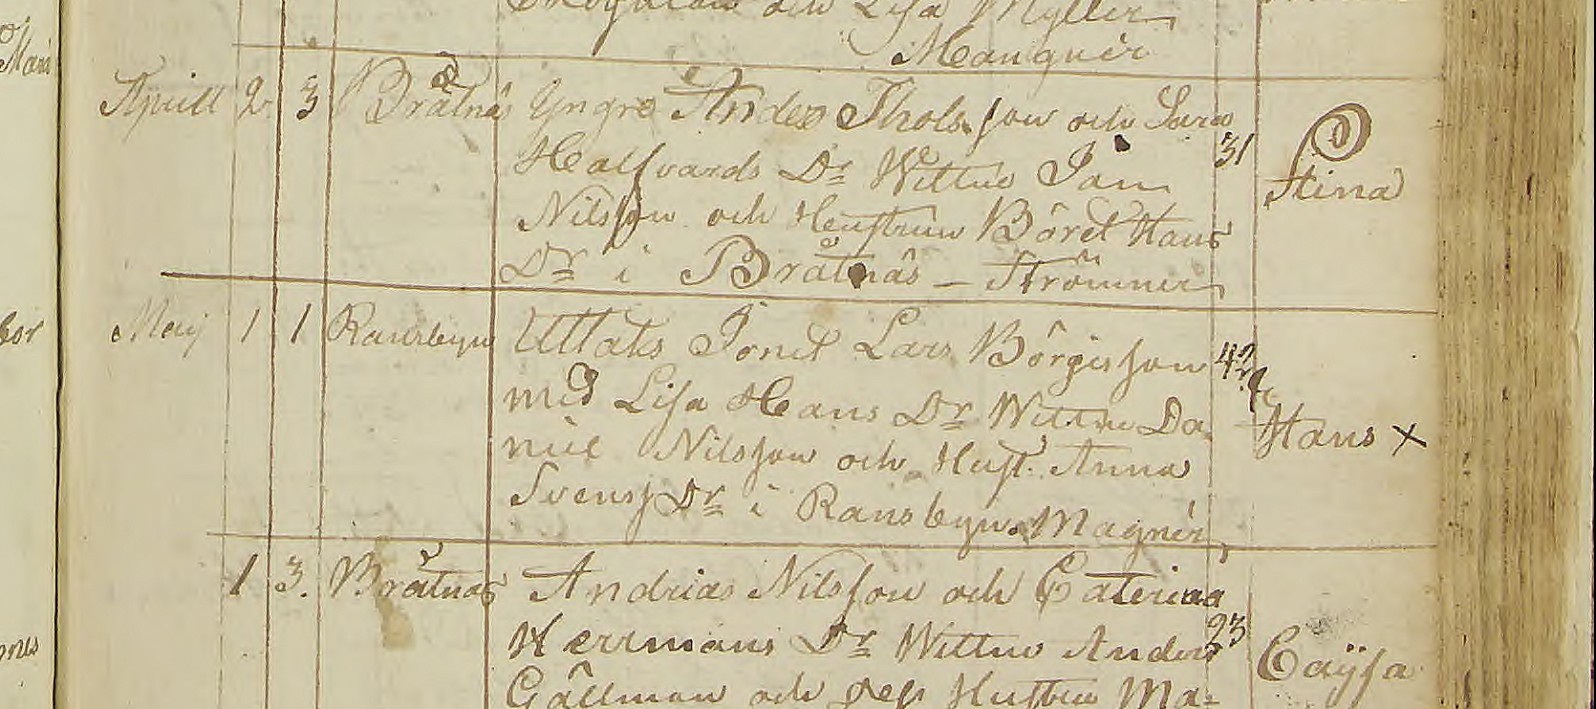 och Lisa Myller
Mangnér
Aprill 2 3 Bråtnäs Yngre Anders Thols son och Sara
Halfvards Dr Wittne Jan 31 Stina
Nilsson och Heustrun Böret Hans
Dr i Bråtnäs – Strömner
Maij 1 1 Ransbyn Uttaks Jonet Lars Börgisson 42
med Lisa Hans Dr Wittne Da- Hans x
niel Nilsson och Hust. Anna
Svens Dr i Ransbyn. Magnér
1 3. Bråtnäs Andrias Nilsson och Caterina
Herrmans Dr Wittne Anders 23 Cajsa
Gällman och Dess Hustru Ma-